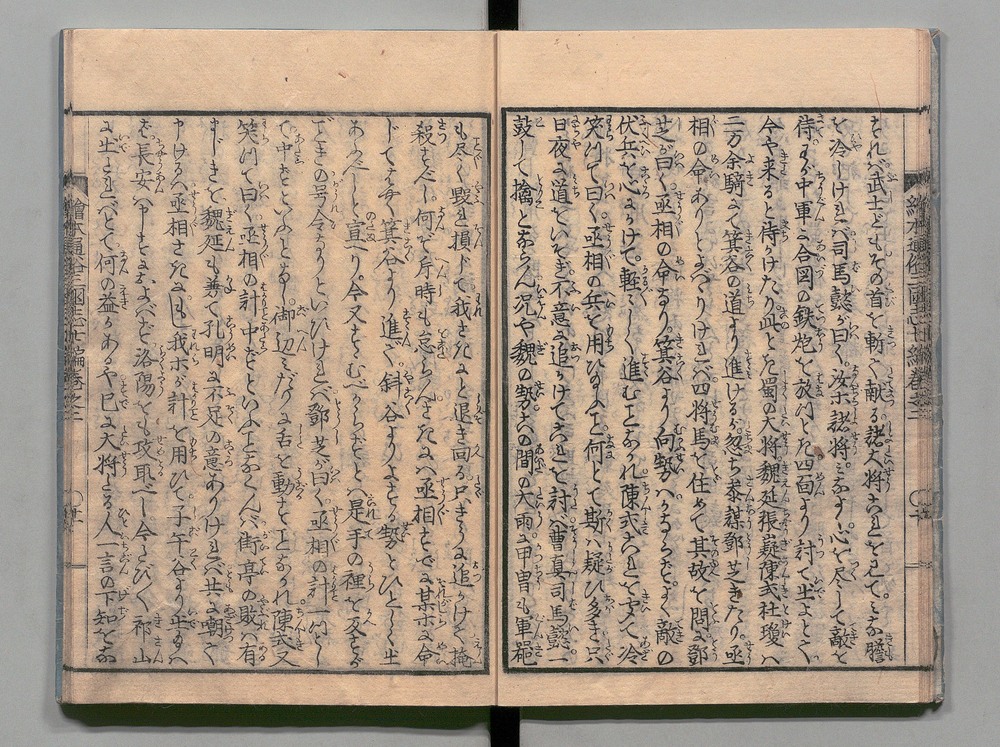 たれバ武士どもその首を斬て献る諸大将これを見てミな膽
を冷しけれバ司馬懿が曰く汝ホ諸将ミな心を尽して敵を
待もし中軍に合図の鉄炮を放つとき四面より討て出よとて
今や来ると待けたり此とき蜀の大将魏延張嶷陳式杜瓊ハ
二万余騎にて箕谷の道より進けるが忽ち参謀鄧芝きたり丞
相の命ありとよバりけれバ四将馬を住めて其故を問に鄧
芝が曰く丞相の命なり箕谷より向勢ハかならずよく敵の
伏兵を心がけて軽〳〵しく進むことなかれ陳式これを聞て冷
笑つて曰く丞相の兵を用ひ給ふこと何とて斯ハ疑ひ多き只
日夜に道をいそぎ不意に追かけてこれを討バ曹真司馬懿一
鼓して擒とならん况や魏の勢この間の大雨に甲冑も軍器
も尽く毀れ損じて我さきにと退き回る只きうに追かけて掩
殺すべし何ぞ片時も忘らんさきにハ丞相すでに某ホに命
じてはやく箕谷より進て斜谷よりよする勢とひとしく出
あふべしと宣り今又とゞむべからずとハ是手の裡を反す
ごときの号令なりといひけれバ鄧芝が曰く丞相の計一つとし
て中ずといふとなし御辺ミだりに舌を動すことなかれ陳式又
笑つて曰く丞相の計中ずといふことなくんバ街亭の敗ハ有
まじきを魏延も兼て孔明に不足の意ありけれバ共に嘲て
申けるハ丞相さきにもし我ホが計を用ひて子午谷より出るハ
を長安ハ申すにおよバず洛陽をも攻取べし今ふたゝび祁山
に出るとて何の益かあるや已に大将となる人一言の下知をな
繪本通俗三國志七編巻之二
繪本通俗三國志七編巻之二